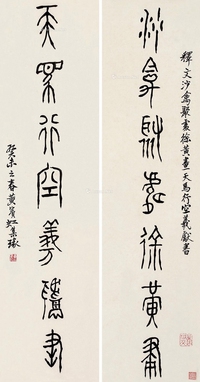 釋文沙禽聚處徐黃畫天馬行空羲獻書
沙禽聚處徐黃畫
天馬行空羲獻書
癸未之春黃賓虹集